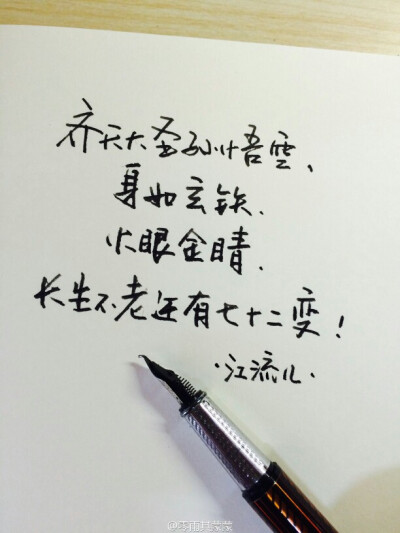 齐天大圣孙悟雲、
身如玄铁、
火眼金睛、
长生不老还有七十二变！
·江流儿·